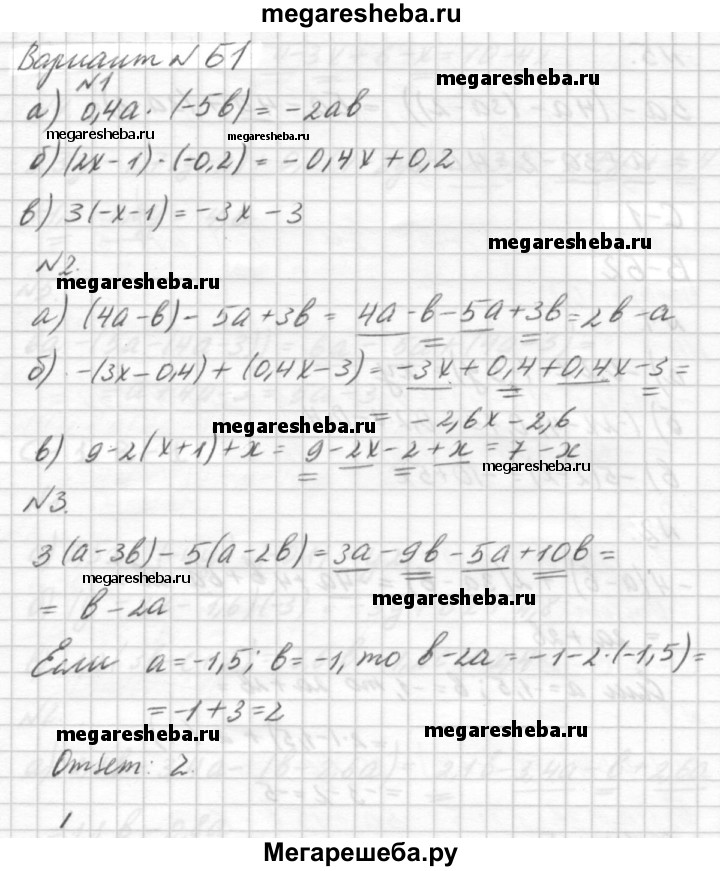 megaresheba.ru
Вариант № Б1
№1
megaresheba.ru
а) 0,4a · (-5b) = -2ab
megaresheba.ru megaresheba.ru
б) (2x-1) · (-0,2) = -0,4x + 0,2
в) 3(-x-1) = -3x - 3
megaresheba.ru
№2.
megaresheba.ru
а) (4a-b) - 5a+3b = 4a-b-5a+3b = 2b-a
б) -(3x-0,4) + (0,4x-3) = -3x+0,4+0,4x-3 =
= -2,6x-2,6
megaresheba.ru
в) 9-2(x+1)+x = 9-2x-2+x = 7-x
megaresheba.ru
№3.
3(a-3b)-5(a-2b) = 3a-9b-5a+10b =
megaresheba.ru
= b-2a
megaresheba.ru
Если a=-1,5; b=-1, то b-2a = -1-2·(-1,5) =
= -1+3=2
megaresheba.ru megaresheba.ru
Ответ: 2.
Мегарешеба.ру